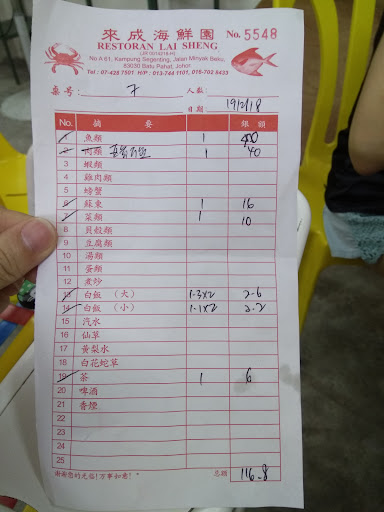 來成海鮮園 No. 5548
RESTORAN LAI SHENG
No A 61, Kampung Segenting, Jalan Minyak Beku,
83030 Batu Pahat, Johor.
Tel: 07-428 7501 H/P: 013-744 1101, 016-702 8433
桌號: 7 人數:
日期: 19/2/18
No. 摘 要 銀 額
1 魚類 1
2 肉類 1 40
3 蝦類
4 雞肉類
5 螃蟹
6 蘇東 1 16
7 菜類 1 10
8 貝殼類
9 豆腐類
10 湯類
11 蛋類
12 煮炒
13 白飯 (大) 1-3x2 2-6
14 白飯 (小) 1-1x2 2-2
15 汽水
16 仙草
17 黃梨水
18 白花蛇草
19 茶 1 6
20 啤酒
21 香煙
22
23
24
25
謝謝您的光臨! 万事如意! * 总額 116-8